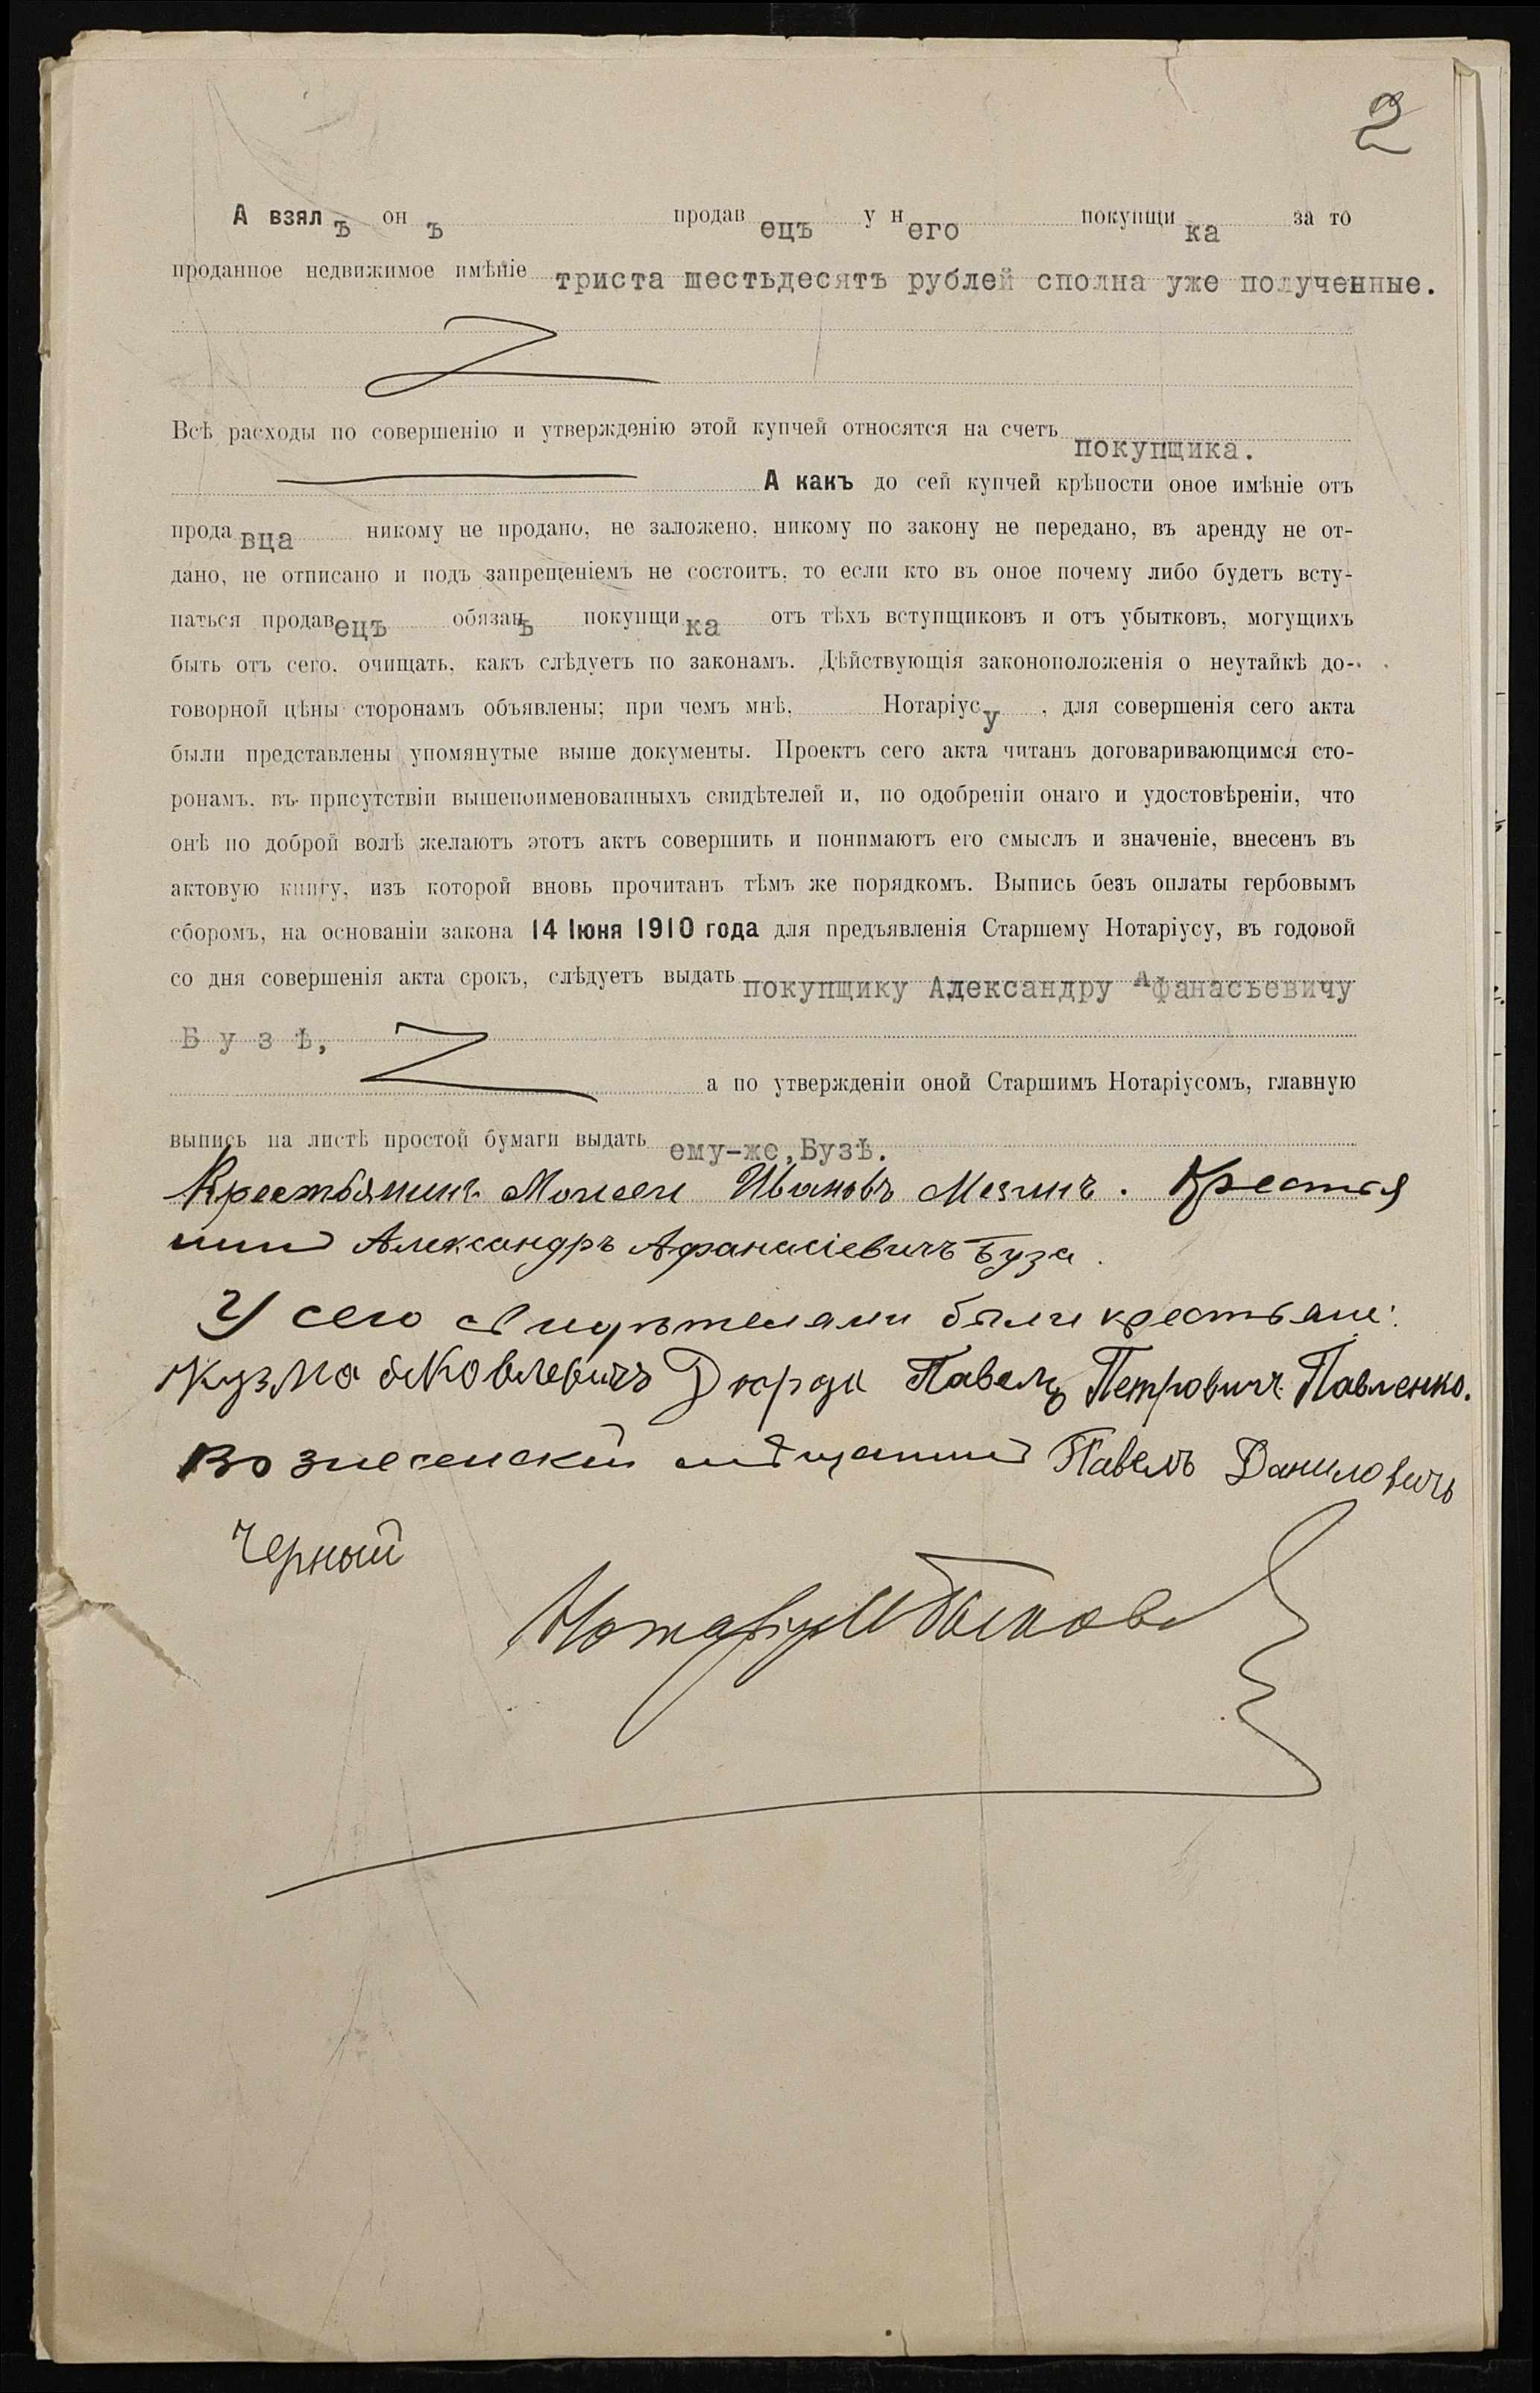 2
А взялъ онъ продавецъ у него покупщика за то
проданное недвижимое имѣніе триста шестьдесятъ рублей сполна уже полученные.
Всѣ расходы по совершенію и утвержденію этой купчей относятся на счетъ покупщика.
А какъ до сей купчей крѣпости оное имѣніе отъ
продавца никому не продано, не заложено, никому по закону не передано, въ аренду не от-
дано, не отписано и подъ запрещеніемъ не состоитъ, то если кто въ оное почему либо будетъ всту-
паться продавецъ обязанъ покупщика отъ тѣхъ вступщиковъ и отъ убытковъ, могущихъ
быть отъ сего, очищать, какъ слѣдуетъ по законамъ. Дѣйствующія законоположенія о неутайкѣ до-
говорной цѣны сторонамъ объявлены; при чемъ мнѣ, Нотаріусу, для совершенія сего акта
были представлены упомянутые выше документы. Проектъ сего акта читанъ договаривающимся сто-
ронамъ, въ присутствіи вышепоименованныхъ свидѣтелей и, по одобреніи онаго и удостовѣреніи, что
онѣ по доброй волѣ желаютъ этотъ актъ совершить и понимаютъ его смыслъ и значеніе, внесенъ въ
актовую книгу, изъ которой вновь прочитанъ тѣмъ же порядкомъ. Выпись безъ оплаты гербовымъ
сборомъ, на основаніи закона 14 Іюня 1910 года для предъявленія Старшему Нотаріусу, въ годовой
со дня совершенія акта срокъ, слѣдуетъ выдать покупщику Александру Афанасьевичу
Бузѣ,
а по утвержденіи оной Старшимъ Нотаріусомъ, главную
выпись на листѣ простой бумаги выдать ему-же, Бузѣ.
Крестьянинъ Моисеи Ивановъ Мезинъ. Крестья
нинъ Александръ Афанасіевичъ Буза.
У сего свидѣтелями были крестьяне:
Кузма Яковлевичъ Дюрда Павелъ Петровичъ Павленко.
Вознесенский мѣщанинъ Павелъ Даниловичъ
Черный
Нотаріусъ